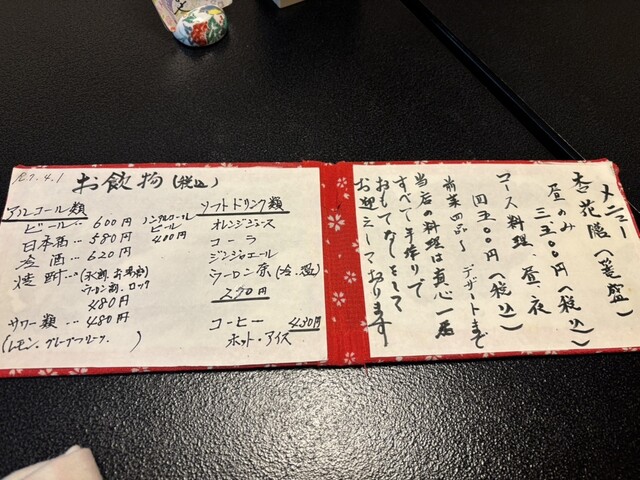 R7.4.1
お飲物(税込)
アルコール類
ビール… 600円
日本酒… 580円
梅酒… 620円
焼酎…(水割、お湯割
ウーロン割、ロック
480円
サワー類… 480円
(レモン、グレープフルーツ、)
ノンアルコール
ビール
400円
ソフトドリンク類
オレンジジュース
コーラ
ジンジャエール
ウーロン茶(冷、温)
270円
コーヒー 430円
ホット・アイス
メニュー
杏花膳(篭盛)
昼のみ
三五〇〇円(税込)
コース料理、昼、夜
四五〇〇円(税込)
前菜四品〜デザートまで
当店の料理は真心一店
すべて手作りで
おもてなしをして
お迎えしております